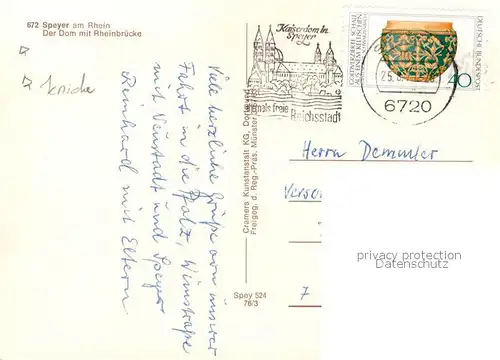 672 Speyer am Rhein
Der Dom mit Rheinbrücke
Knicke
Viele herzliche Grüße von unsrer
Fahrt in die Pfalz, Weinstraße
mit Neustadt und Speyer
Reinhard mit Eltern
Cramers Kunstanstalt KG, Dortmund
Freigeg. d. Reg.-Präs. Münster
Spey 524
76/3
Kaiserdom in
Speyer
freie
Reichsstadt
GOLDVERZIERTE SCHALE
AUS EINEM KELTISCHEN
DEUTSCHE BUNDESPOST
40
25.
6720
Herrn Demmler
7
privacy protection
Datenschutz